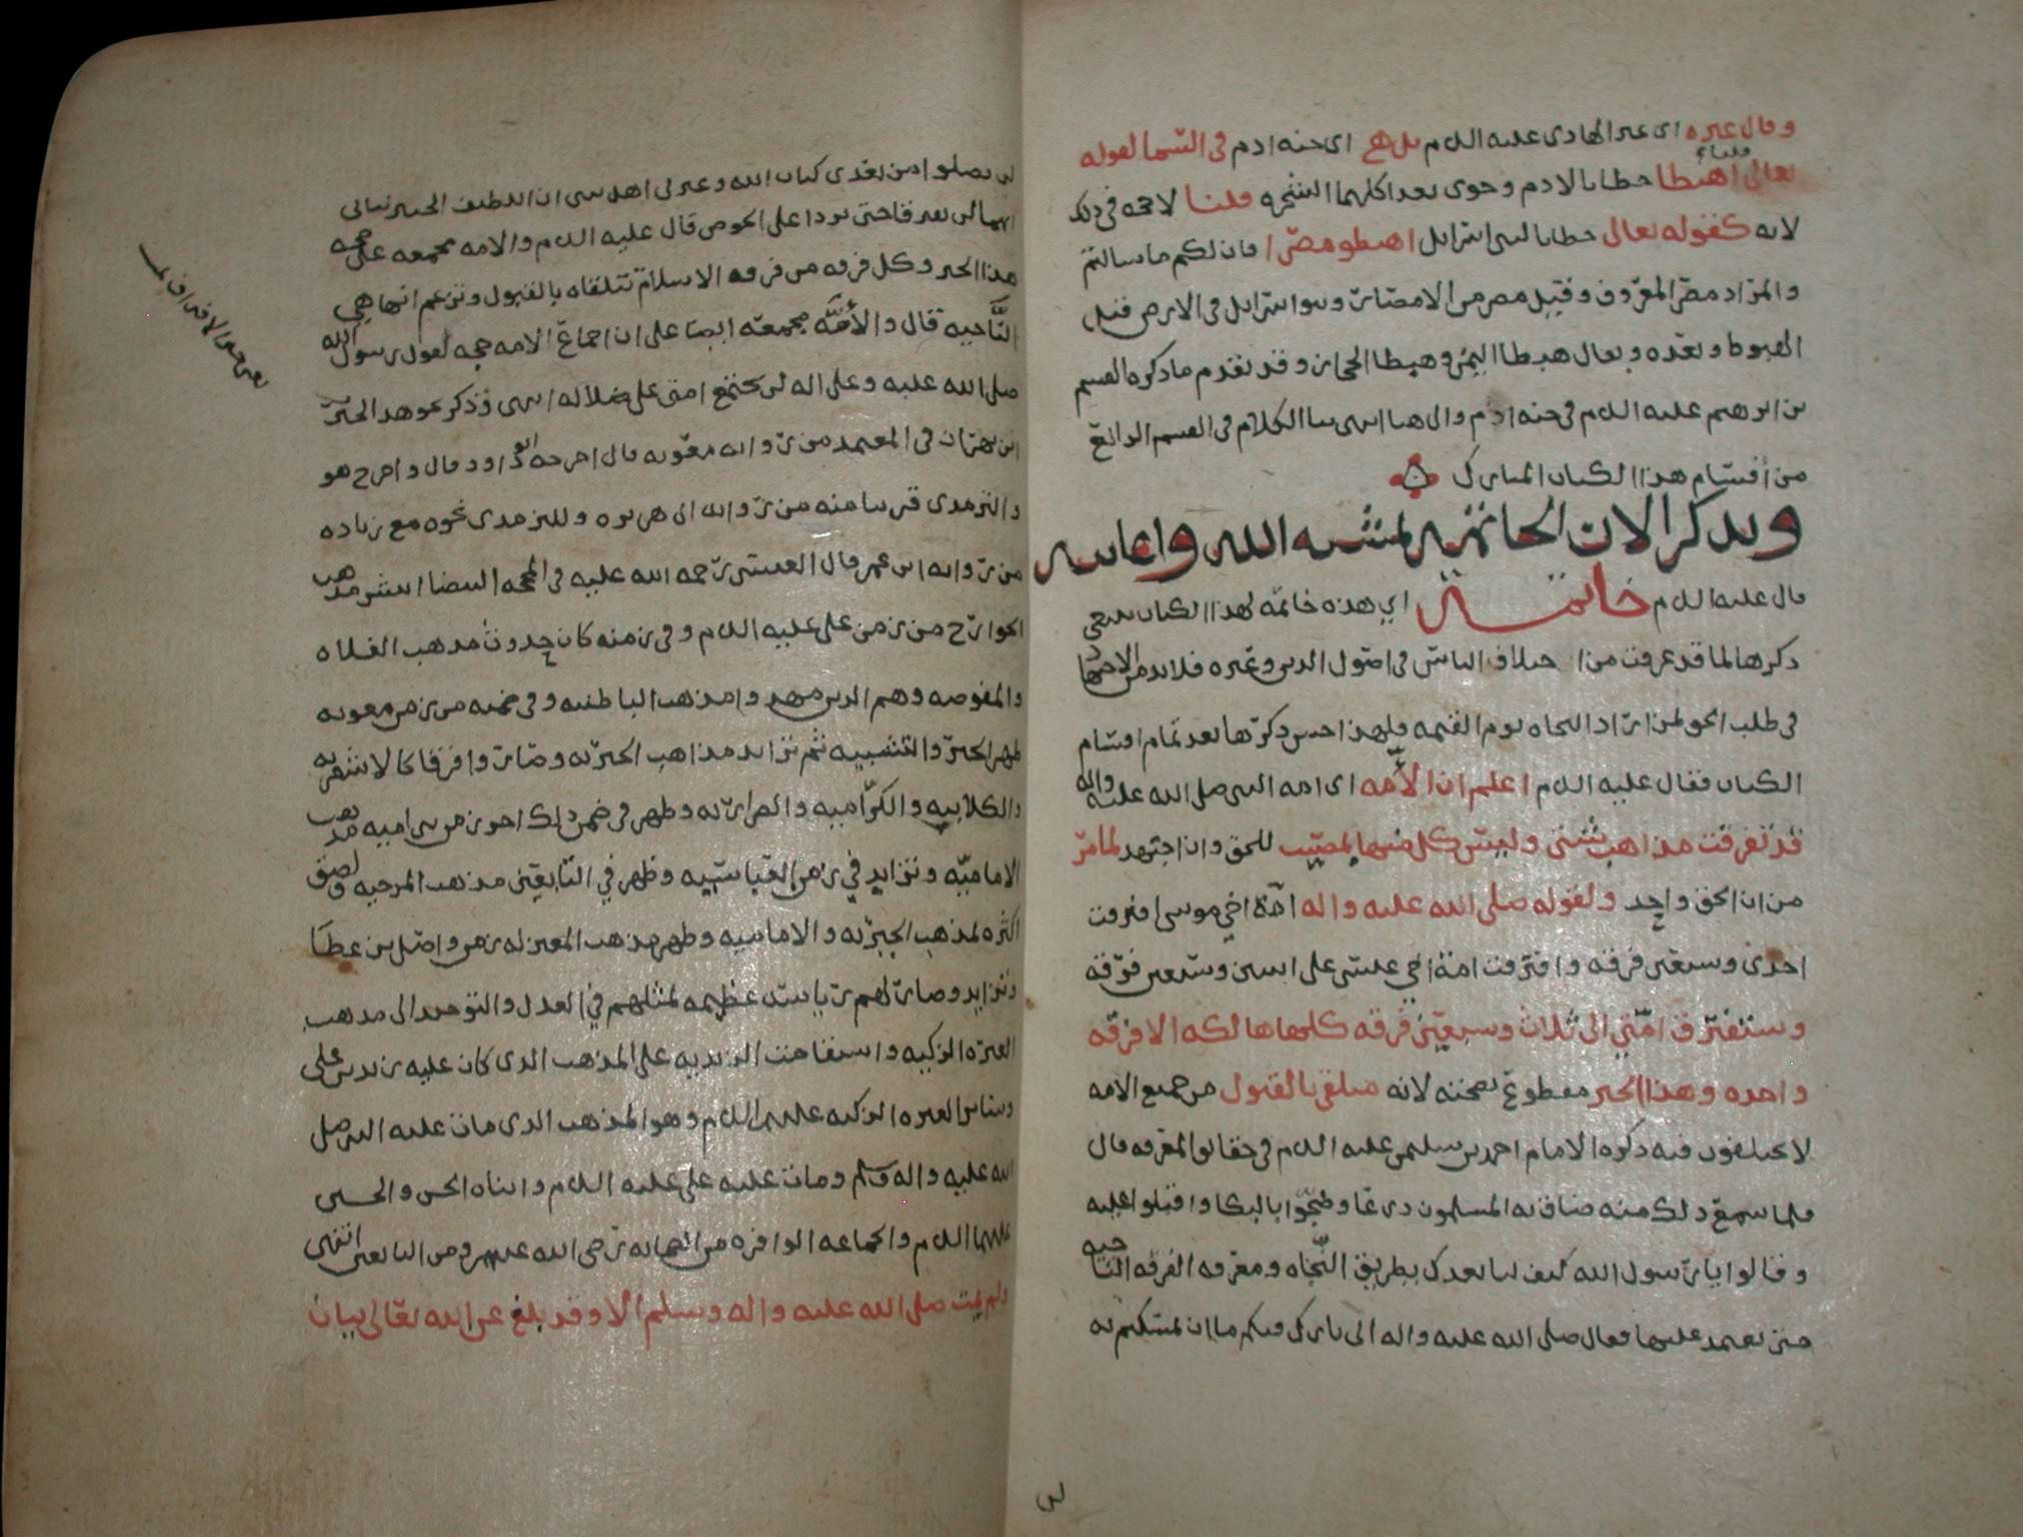 وقال غيره اي غير الهادي عليه السلم بل هي اي جنه ادم في السما لقوله
تعالى اهبطا خطابا لادم وحوى بعد اكلهما الشجره قلنا لا حجه في ذلك
لانه كقوله تعالى خطابا لبني اسرايل اهبطو مصرا فان لكم ما سالتم
والمراد مصر المعروف وقيل مصر من الامصار وبنوا اسرايل في الارض قبل
الهبوط وبعده ويقال هبطنا اليمن وهبطنا الحجاز وقد تقدم ما ذكره القسم
بن ابرهيم عليه السلم في جنه ادم والى هنا انتهى بنا الكلام في القسم الرابع
من اقسام هذا الكتاب المبارك
ونذكر الان الخاتمه لمشيه الله واعانته
قال عليه السلم خاتمه اي هذه خاتمه لهذا الكتاب ينبغي
ذكرها لما قد عرفت من اختلاف الناس في اصول الدين وغيره فلا بد من الاجتهاد
في طلب الحق لمن اراد النجاه يوم القيمه ولهذا احسن ذكرها بعد تمام اقسام
الكتاب فقال عليه السلم اعلم ان الأمه اي امه النبي صلى الله عليه واله
قد تفرقت مذاهب شتى وليس كل منها بمصيب للحق وان اجتهد لما مر
من ان الحق واحد ولقوله صلى الله عليه واله امة اخي موسى افترقت
احدى وسبعين فرقه وافترقت امة اخي عيسى على اثنين وسبعين فرقه
وستفترق امتي الى ثلاث وسبعين فرقه كلها هالكه الا فرقه
واحده وهذا الخبر مقطوع بصحته لانه متلقى بالقبول من جميع الامه
لا يختلفون فيه ذكره الامام احمد بن سليمن عليه السلم في حقائق المعرفه قال
فلما سمع ذلك منه ضاق به المسلمون ذرعا وضجوا بالبكا واقبلوا عليه
وقالوا يا رسول الله كيف لنا بعدك بطريق النجاه ومعرفه الفرقه الناجيه
حتى نعتمد عليها فقال صلى الله عليه واله اني تارك فيكم ما ان تمسكتم به
لن تضلوا من بعدي كتاب الله وعترتي اهل بيتي ان اللطيف الخبير نباني
انهما لن يفترقا حتى يردا على الحوض قال عليه السلم والامه مجمعه على صحه
هذا الخبر وكل فرقه من فرقه الاسلام تتلقاه بالقبول وتزعم انها هي
الناجيه قال والأمه مجمعه ايضا على ان اجماع الامه حجه لقول رسول الله
صلى الله عليه وعلى اله لن تجتمع امتي على ضلاله انتهى وذكر نحو هذا الخبر
ابن بهران في المعتمد من روايه معويه قال اخرجه ابو داود قال واخرج هو
والترمذي قريبا منه من روايه ابي هريره وللترمذي نحوه مع زياده
من روايه ابن عمر قال العنسي رحمه الله عليه في المحجه البيضا انتشر مذهب
الخوارج من زمن علي عليه السلم وفي زمنه كان حدوث مذهب الغلاه
والمفوضه وهم الذين مهدوا مذهب الباطنيه وفي ضمنه من زمن معويه
ظهر الجبر والتشبيه ثم تزايد مذاهب الجبريه وصاروا فرقا كالاشعريه
والكلابيه والكراميه والضراريه وظهر في ضمن ذلك اخر زمن بني اميه مذهب
الاماميه وتزايد في زمن العباسيه وظهر في التابعين مذهب المرجيه ولصق
اكثره لمذهب الجبريه والاماميه وظهر مذهب المعتزله زمن واصل بن عطا
وتزايد وصار لهم رياسه عظيمه لميلهم في العدل والتوحيد الى مذهب
العتره الزكيه واستقامت الزيديه على المذهب الذي كان عليه زيد بن علي
وساير العتره الزكيه عليهم السلم وهو المذهب الذي مات عليه النبي صلى
الله عليه واله وسلم ومات عليه علي عليه السلم وابناه الحسن والحسين
عليهما السلم والجماعه الوافره من الصحابه رضي الله عنهم ومن التابعين انتهى
ولم يمت صلى الله عليه واله وسلم الا وقد بلغ عن الله تعالى بيان